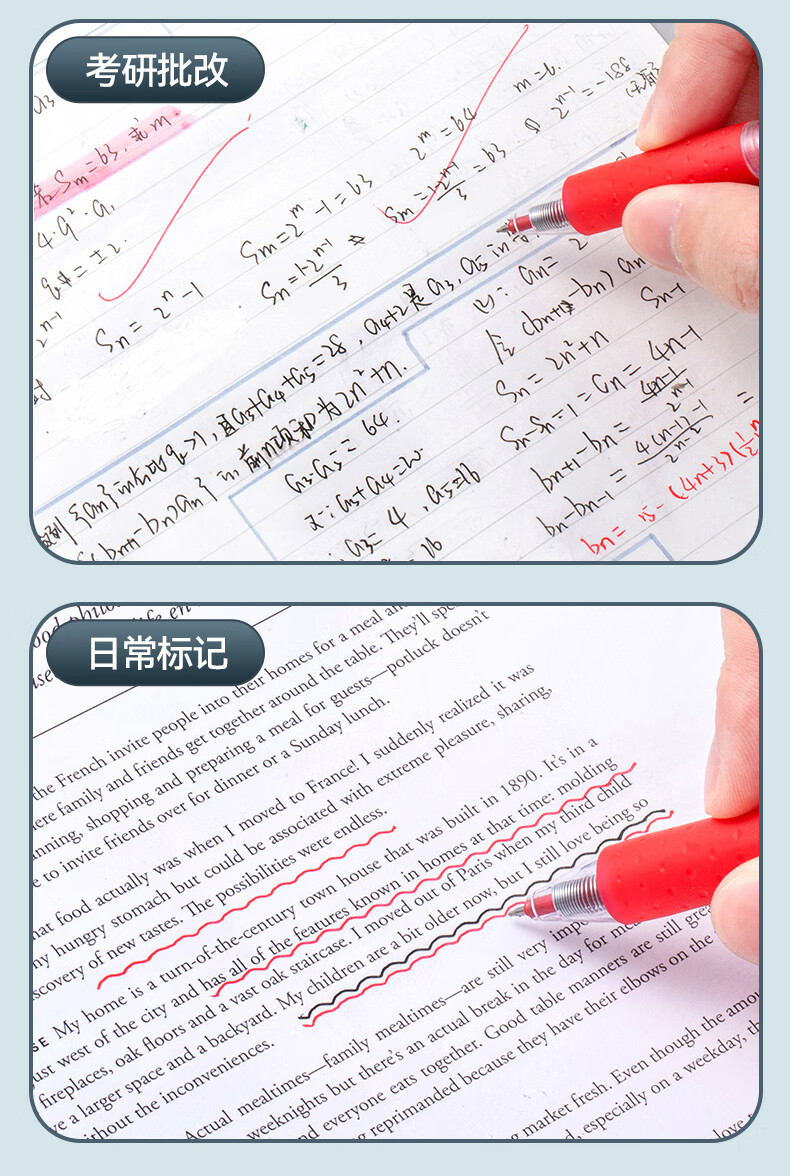 考研批改
a3
Sm=63,求m.
4·q²·a1
=±2.
2ⁿ⁻¹
Sn=2ⁿ-1
Sm=2ᵐ-1=63
2ᵐ=64
m=6.
Sn=1-2ⁿ⁻¹/3
Sm=1-2ᵐ⁻¹/3=63
2ⁿ⁻¹=-188
{an}
q>1,且a3+a4+a5=28,a4+2是a3,a5
(bn+1-bn)an}
前n项和为2n²+n.
a3·a5=64.
又∵a3+a4=20
a3=4,a5=16
=16
Sn=2n²+n
Sn-Sn-1=an=4n-1
bn+1-bn=4n-1/2ⁿ⁻¹
bn-bn-1=4(n-1)-1/2ⁿ⁻²
bn=15-(4n+3)(1/2)
日常标记
the French invite people into their homes for a meal an
ere family and friends get together around the table. They'll spe
nning, shopping and preparing a meal for guests—potluck doesn't
e to invite friends over for dinner or a Sunday lunch.
hat food actually was when I moved to France! I suddenly realized it was
ny hungry stomach but could be associated with extreme pleasure, sharing,
scovery of new tastes. The possibilities were endless.
SE My home is a turn-of-the-century town house that was built in 1890. It's in a
ust west of the city and has all of the features known in homes at that time: molding
fireplaces, oak floors and a vast oak staircase. I moved out of Paris when my third child
ve a larger space and a backyard. My children are a bit older now, but I still love being so
thout the inconveniences.
Actual mealtimes—family mealtimes—are still very impo
weeknights but there's an actual break in the day for mea
nd everyone eats together. Good table manners are still grea
g reprimanded because they have their elbows on the
ng market fresh. Even though the amou
d, especially on a weekday, th
love